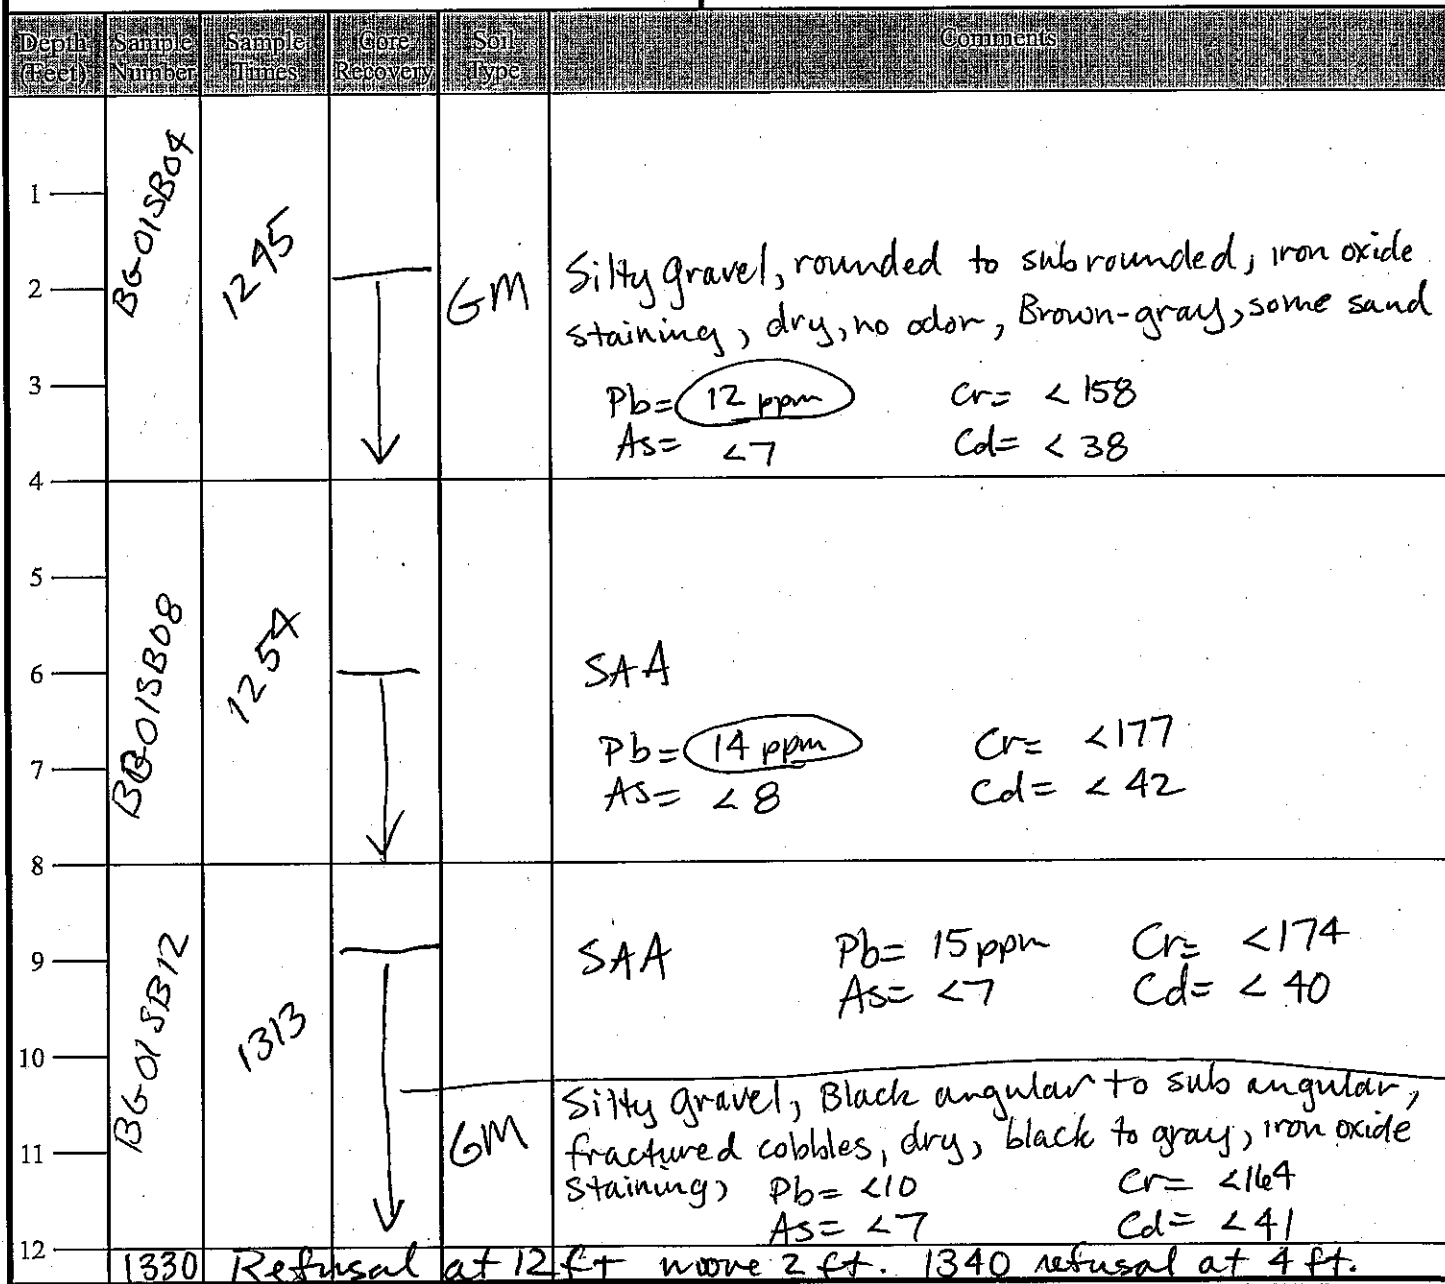 Depth (Feet) Sample Number Sample Times Core Recovery Soil Type Comments
1
2
3
4
BG-01SB04
1245
GM
Silty gravel, rounded to subrounded, iron oxide
staining, dry, no odor, Brown-gray, some sand
Pb= 12 ppm Cr= <158
As= <7 Cd= <38
5
6
7
8
BG-01SB08
1254
SAA
Pb= 14 ppm Cr= <177
As= <8 Cd= <42
9
10
11
12
BG-01SB12
1313
SAA Pb= 15 ppm Cr= <174
As= <7 Cd= <40
GM
Silty gravel, Black angular to sub angular,
fractured cobbles, dry, black to gray, iron oxide
staining, Pb= <10 Cr= <164
As= <7 Cd= <41
1330 Refusal at 12 ft move 2 ft. 1340 refusal at 4 ft.